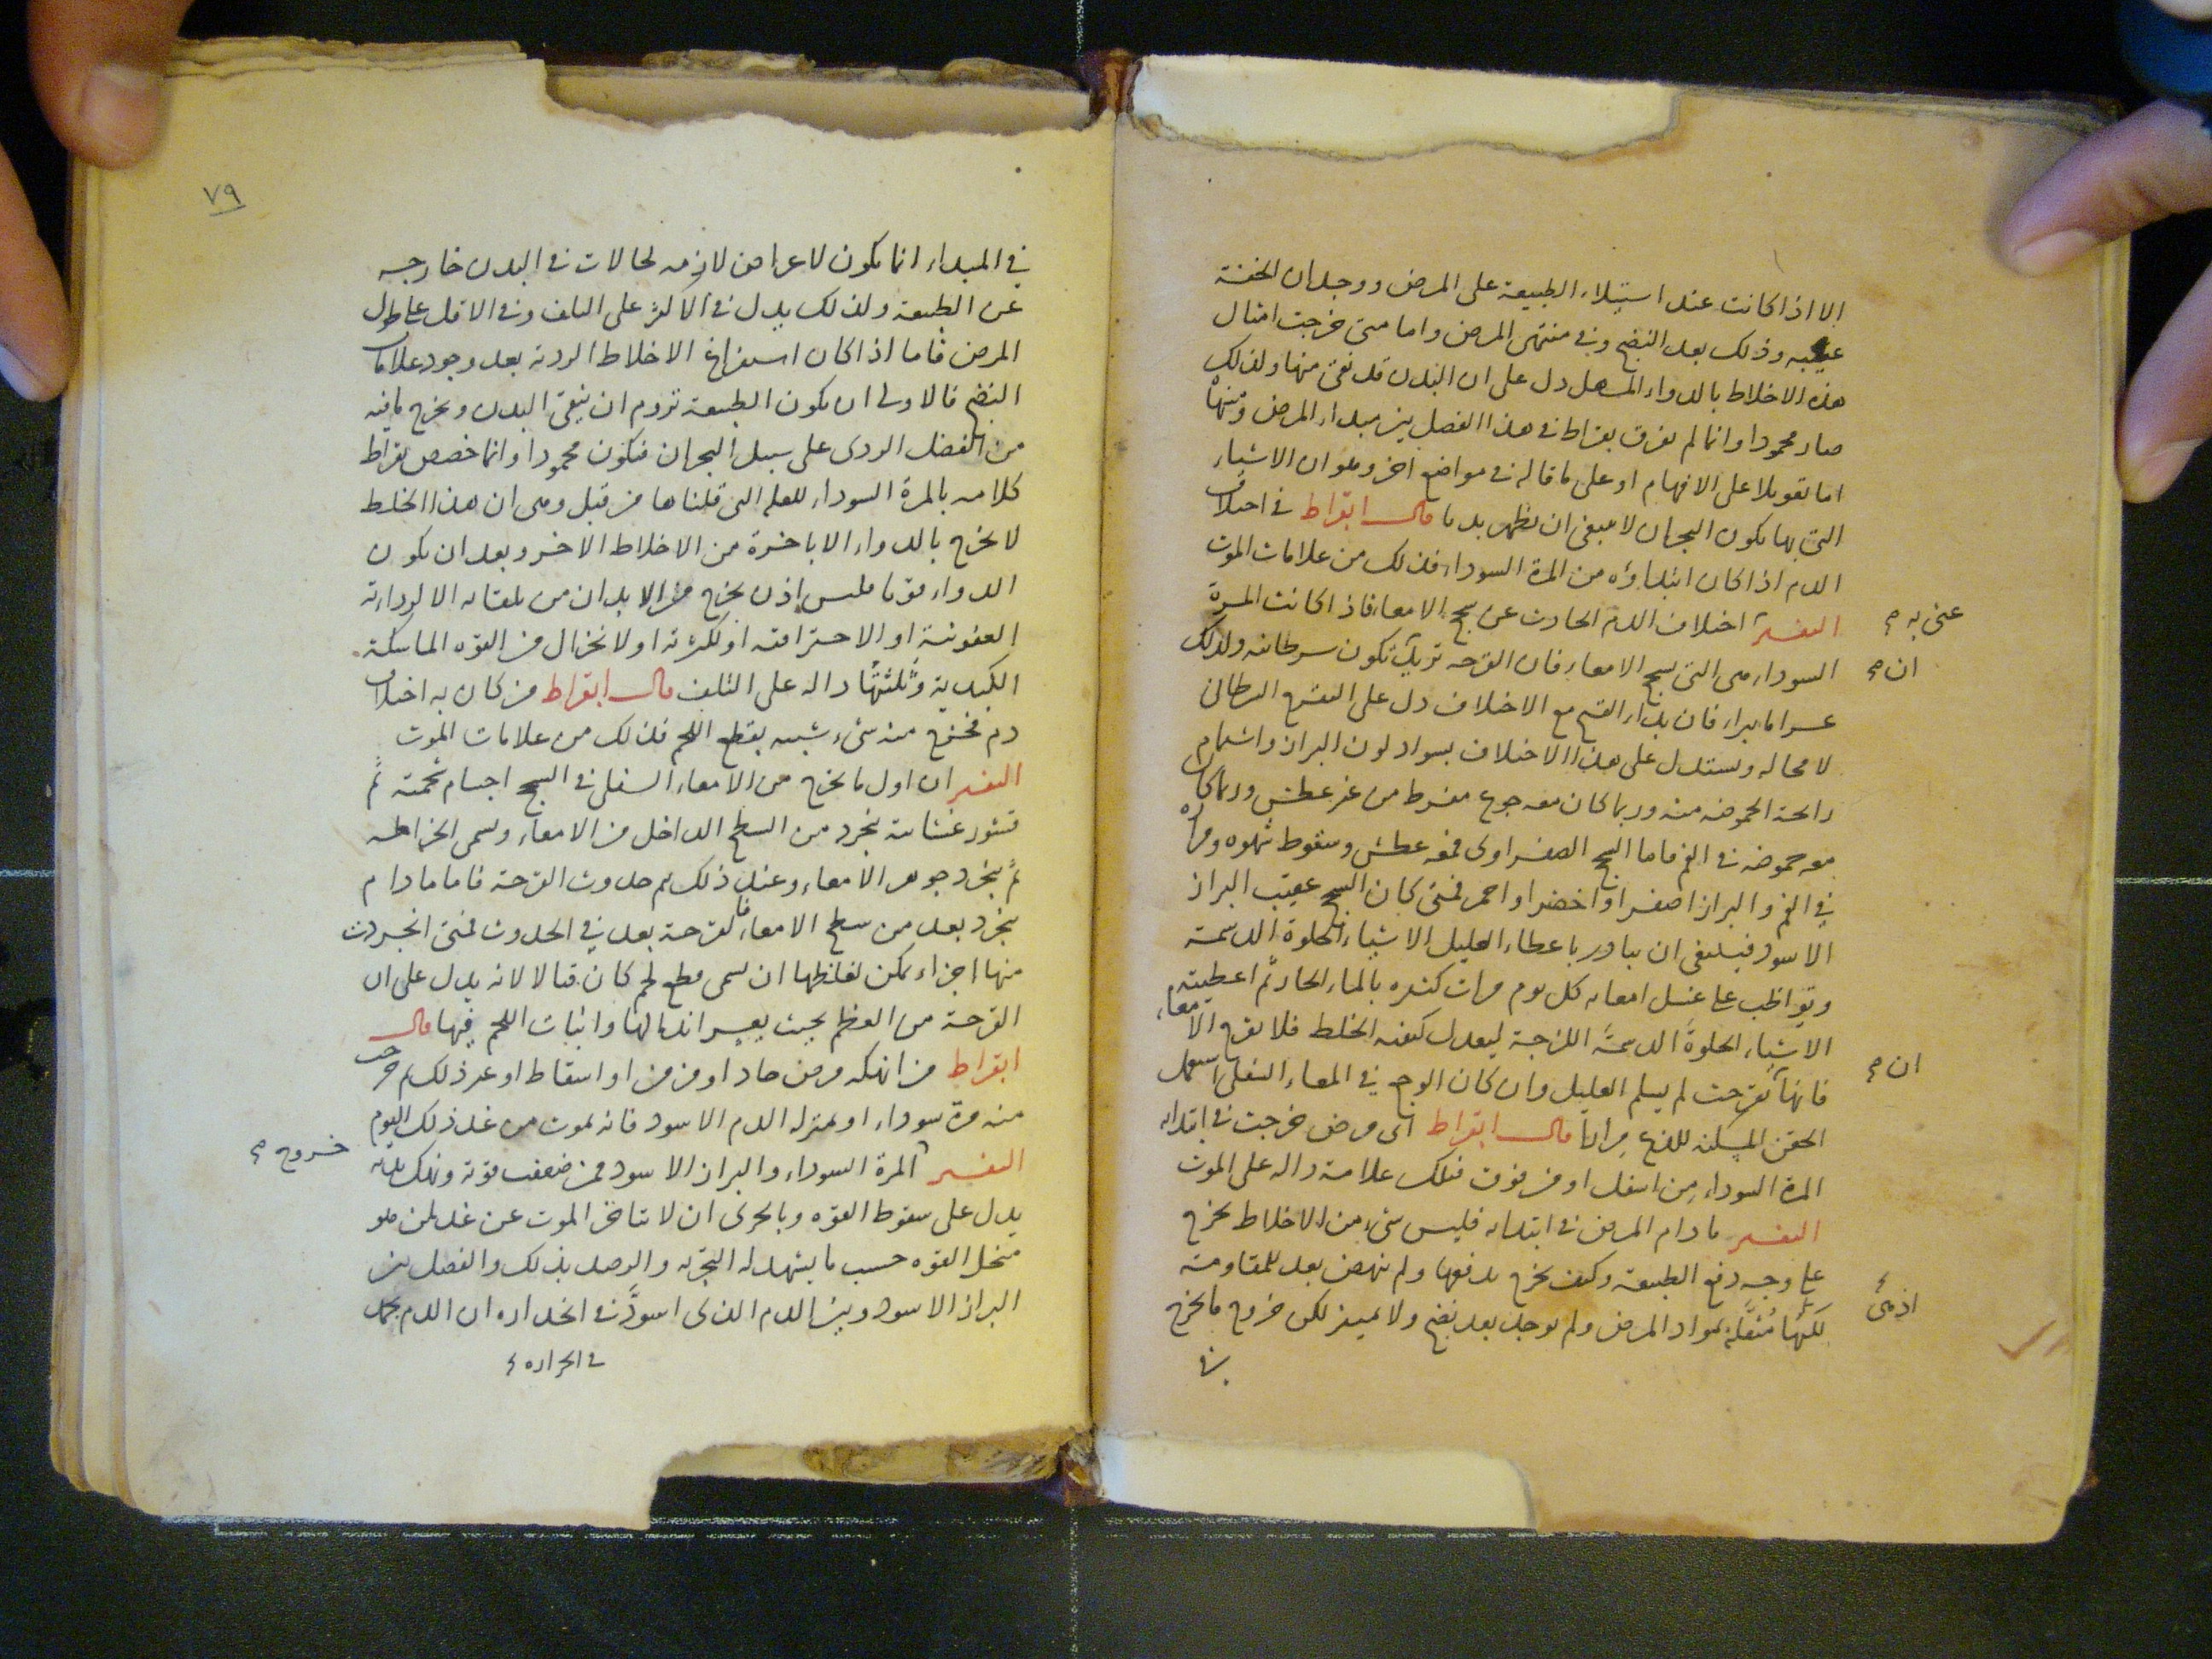 الا اذا كانت عند استيلاء الطبيعة على المرض ووجدان الخفة
عقيبه وذلك بعد النضج وفى منتهى المرض واما متى خرجت امثال
هذه الاخلاط بالدواء المسهل دل على ان البدن قد نقى منها ولذلك
صار محمودا وانما لم يفرق بقراط فى هذا الفصل بين مبداء المرض ومنتهاه
اما تعويلا على الافهام او على ما قاله فى مواضع اخر وهو ان الاشياء
التى بها يكون البحران لا ينبغى ان يظهر بديا قال ابقراط فى اختلاف
الدم اذا كان ابتداؤه من المرة السوداء فذلك من علامات الموت
التفسير اختلاف الدم الحادث عن سحج الامعاء فاذا كانت المرة
عنى به
السوداء هى التى سحج الامعاء فان القرحه تكون سرطانيه ولذلك
ان
عسر اما برا فان بداء القيح مع الاختلاف دل على التقرح السرطانى
لا محاله ويستدل على هذا الاختلاف بسواد لون البراز واشتمام
رائحة الحموضه منه وربما كان معه جوع مفرط من غير عطش وربما كان
معه حموضه فى الفم فاما السحج الصفراوى فمعه عطش وسقوط شهوه ومراره
فى الفم والبراز اصفر او اخضر او احمر فمتى كان السحج عقيب البراز
الاسود فينبغى ان يبادر باعطاء العليل الاشياء الحلوة الدسمة
ويواظب على غسل امعايه كل يوم مرات كثيره بالماء الحار ثم اعطيته
الاشياء الحلوة الدسمة اللزجة ليعدل كيفيه الخلط فلا يقرح الامعاء
فانها تقرحت لم يسلم العليل وان كان الوجع فى المعاء السفلى استعمل
ان
الحقن المسكنه للذع مرارا قال ابقراط اى مرض خرجت فى ابتدائه
المرة السوداء من اسفل او من فوق فتلك علامة داله على الموت
التفسير ما دام المرض فى ابتدائه فليس شىء من الاخلاط يخرج
على وجه دفع الطبيعة وكيف يخرج بدفعها ولم ينهض بعد للمقاومة
لكنها مثقلة بمواد المرض ولم يوجد بعد نضج ولا تمييز لكن خروج ما يخرج
اذ هى
فى
٧٩
فى المبداء انما يكون لاعراض لازمه لحالات فى البدن خارجه
عن الطبيعة ولذلك يدل فى الاكثر على التلف وفى الاقل على طول
المرض فاما اذا كان استفراغ الاخلاط الردئة بعد وجود علامات
النضج فالاولى ان يكون الطبيعة تروم ان ينقى البدن ويخرج ما فيه
من الفضل الردى على سبيل البحران فيكون محمودا وانما خصص بقراط
كلامه بالمرة السوداء للعلة التى قلناها من قبل وهى ان هذا الخلط
لا يخرج بالدواء الا باخرة من الاخلاط الاخر وبعد ان يكون
الدواء قويا فليس اذن يخرج من الابدان من تلقائه الا لرداءته
العفونية او الاحتراقيه او لكثرته او لانخزال من القوه الماسكة
الكبدية وثلثتها داله على التلف قال ابقراط من كان به اختلاف
دم فخرج منه شىء شبيه بقطع اللحم فذلك من علامات الموت
التفسير ان اول ما يخرج من الامعاء السفلى فى السحج اجسام شحمية ثم
قشور غشائية ينجرد من السطح الداخل من الامعاء ويسمى الخراطه
ثم ينجرد جوهر الامعاء وعند ذلك يتم حدوث القرحة فاما مادام
ينجرد بعد من سطح الامعاء فالقرحة بعد فى الحدوث فمتى انجردت
منها اجزاء يمكن لغلظها ان يسمى قطع لحم كان قتالا لانه يدل على ان
القرحة من العظم بحيث يعسر اندمالها وانبات اللحم فيها قال
ابقراط من انهكه مرض حاد او مزمن او اسقاط او غير ذلك ثم خرجت
منه مرة سوداء او بمنزله الدم الاسود فانه يموت من غد ذلك اليوم
التفسير المرة السوداء والبراز الاسود ممن ضعفت قوته ونهك بدنه
خروج
يدل على سقوط القوه وبالحرى ان لا يتاخر الموت عن غد لمن هو
منحل القوه حسب ما يشهد له التجربه والرصد بذلك والفصل بين
البراز الاسود وبين الدم الذى اسود فى انحداره ان الدم يجمد
فى الحراره